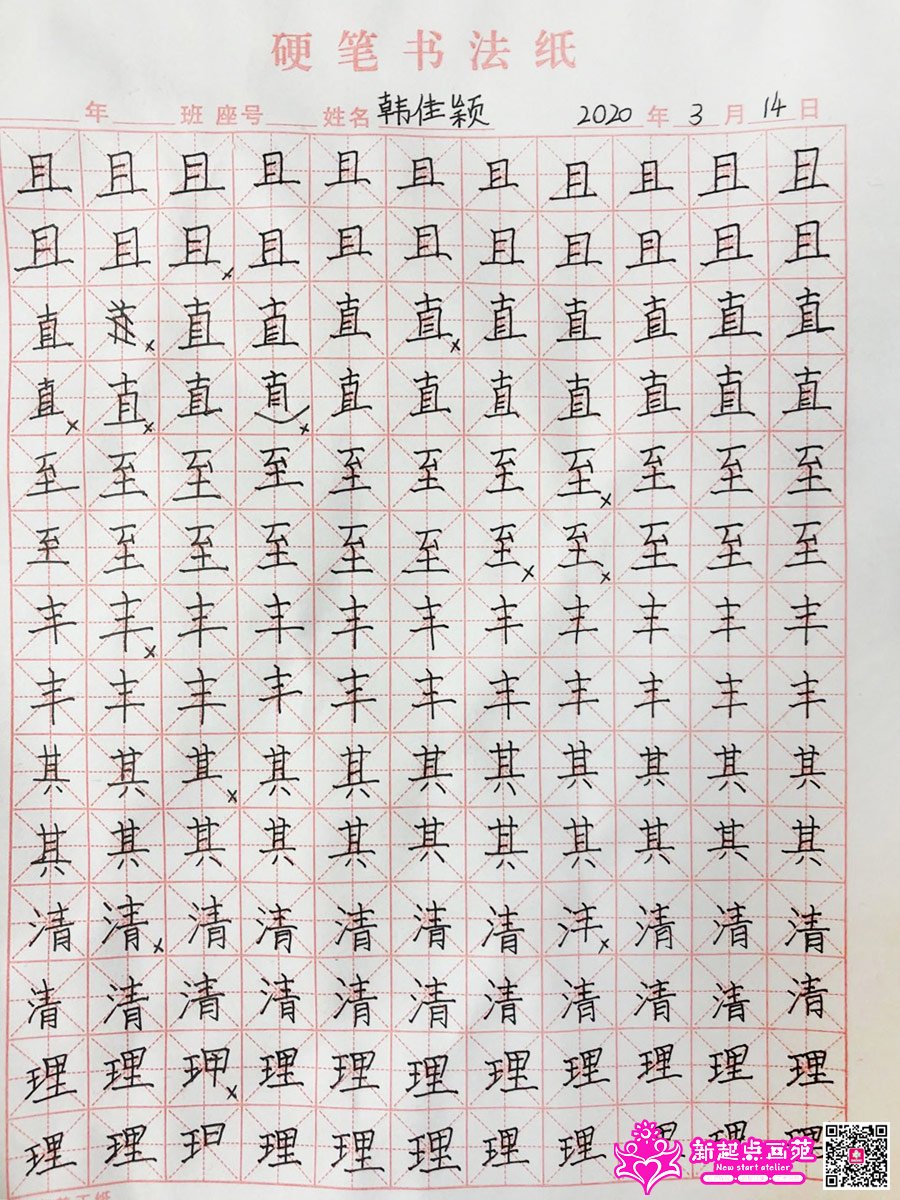 硬笔书法纸
年 班 座号 姓名 韩佳颖 2020 年 3 月 14 日
且 且 且 且 且 且 且 且 且 且 且
且 且 且 且 且 且 且 且 且 且 且
直 直 直 直 直 直 直 直 直 直
直 直 直 直 直 直 直 直 直 直
至 至 至 至 至 至 至 至 至 至 至
至 至 至 至 至 至 至 至 至 至 至
丰 丰 丰 丰 丰 丰 丰 丰 丰 丰 丰
丰 丰 丰 丰 丰 丰 丰 丰 丰 丰 丰
其 其 其 其 其 其 其 其 其 其
其 其 其 其 其 其 其 其 其 其 其
清 清 清 清 清 清 清 沣 清 清 清
清 清 清 清 清 清 清 清 清 清 清
理 理 玾 理 理 理 理 理 理 理 理
理 理 理 理 理 理 理
新起点画苑
New start atelier